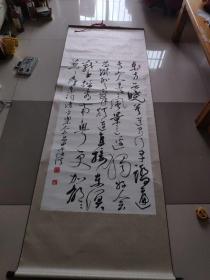 东方欲晓莫道君行早踏遍
青山人未老风景这边独好会
昌城外高峰颠连直接东溟
战士指看南粤更加郁郁